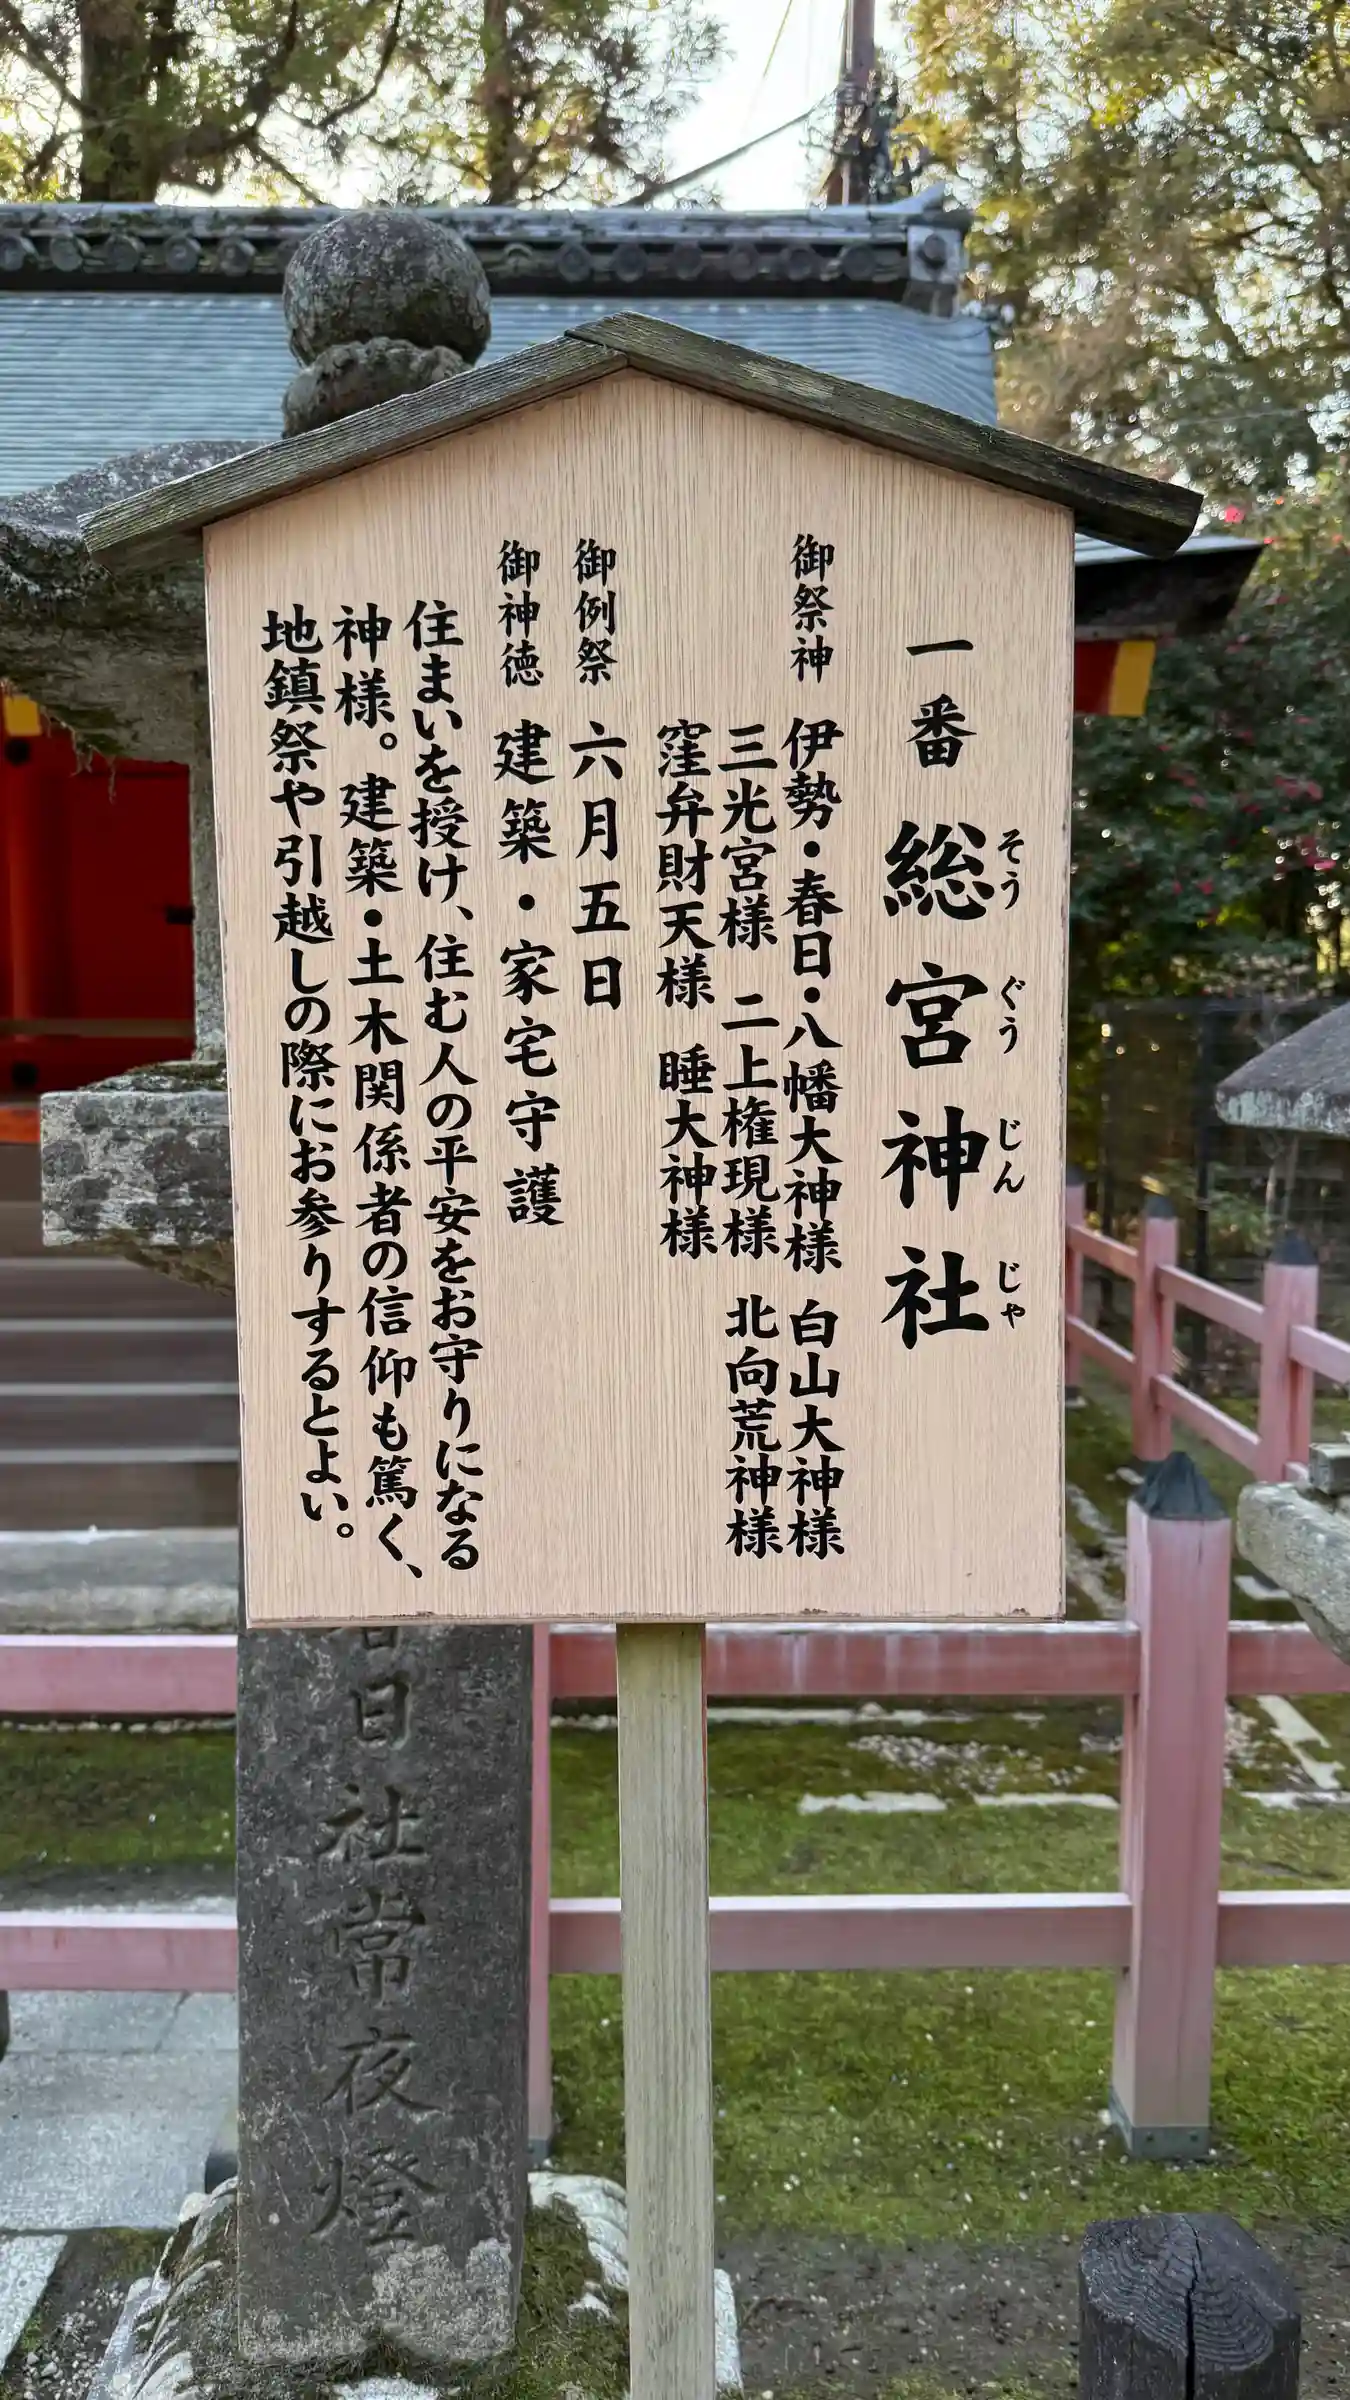 一番 総宮神社
そうぐうじんじゃ
御祭神 伊勢・春日・八幡大神様 白山大神様
三光宮様 二上権現様 北向荒神様
窪弁財天様 睡大神様
御例祭 六月五日
御神徳 建築・家宅守護
住まいを授け、住む人の平安をお守りになる
神様。建築・土木関係者の信仰も篤く、
地鎮祭や引越しの際にお参りするとよい。
春日社常夜燈